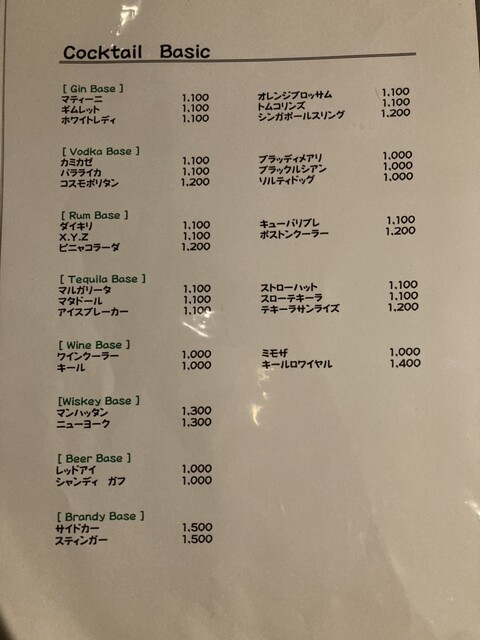 Cocktail Basic
[ Gin Base ]
マティーニ 1,100 オレンジブロッサム 1,100
ギムレット 1,100 トムコリンズ 1,100
ホワイトレディ 1,100 シンガポールスリング 1,200
[ Vodka Base ]
カミカゼ 1,100 ブラッディメアリ 1,000
バラライカ 1,100 ブラックルシアン 1,000
コスモポリタン 1,200 ソルティドッグ 1,000
[ Rum Base ]
ダイキリ 1,100 キューバリブレ 1,100
X.Y.Z 1,100 ボストンクーラー 1,200
ピニャコラーダ 1,200
[ Tequila Base ]
マルガリータ 1,100 ストローハット 1,100
マタドール 1,100 スローテキーラ 1,100
アイスブレーカー 1,100 テキーラサンライズ 1,200
[ Wine Base ]
ワインクーラー 1,000 ミモザ 1,000
キール 1,000 キールロワイヤル 1,400
[Wiskey Base ]
マンハッタン 1,300
ニューヨーク 1,300
[ Beer Base ]
レッドアイ 1,000
シャンディ ガフ 1,000
[ Brandy Base ]
サイドカー 1,500
スティンガー 1,500